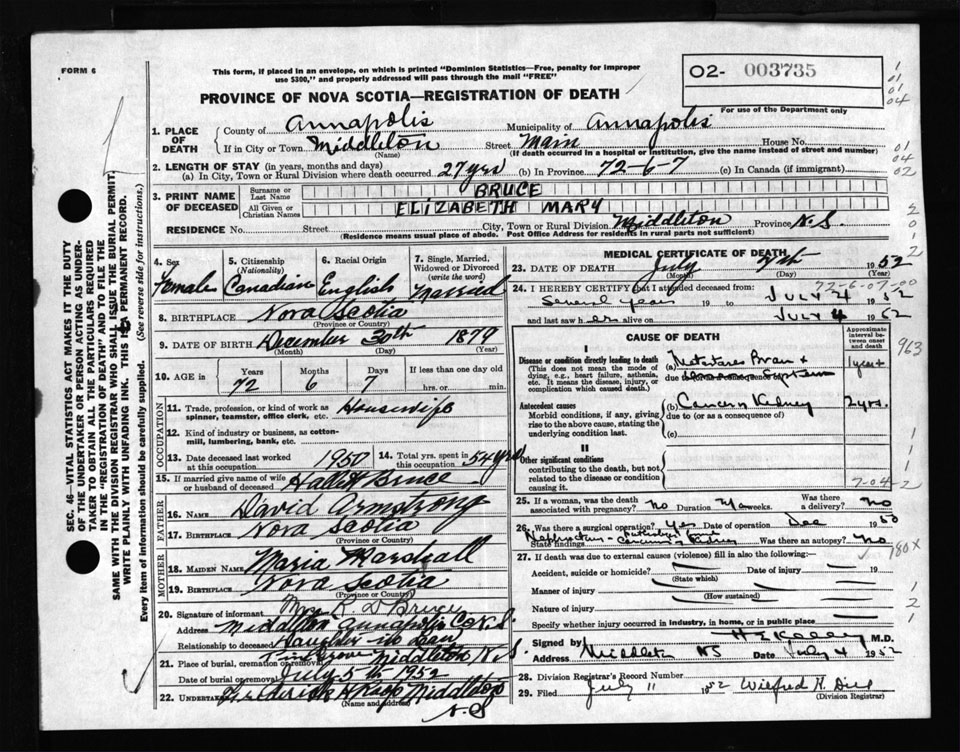 FORM 6
This form, if placed in an envelope, on which is printed "Dominion Statistics—Free, penalty for improper
use $300," and properly addressed will pass through the mail "FREE"
PROVINCE OF NOVA SCOTIA—REGISTRATION OF DEATH
02- 003735
For use of the Department only
1. PLACE OF DEATH
County of Annapolis Municipality of Annapolis
If in City or Town Middleton (Name) Street Main House No.
(If death occurred in a hospital or institution, give the name instead of street and number)
2. LENGTH OF STAY (in years, months and days)
(a) In City, Town or Rural Division where death occurred 27 yrs (b) In Province 72-6-7 (c) In Canada (if immigrant)
3. PRINT NAME OF DECEASED
Surname or Last Name BRUCE
All Given or Christian Names ELIZABETH MARY
RESIDENCE No. Street City, Town or Rural Division Middleton Province N.S.
(Residence means usual place of abode. Post Office Address for residents in rural parts not sufficient)
4. Sex Female
5. Citizenship (Nationality) Canadian
6. Racial Origin English
7. Single, Married, Widowed or Divorced (write the word) Married
8. BIRTHPLACE Nova Scotia
(Province or Country)
9. DATE OF BIRTH December 30th 1879
(Month) (Day) (Year)
10. AGE in Years 72 Months 6 Days 7 If less than one day old hrs. or min.
OCCUPATION
11. Trade, profession, or kind of work as spinner, teamster, office clerk, etc. Housewife
12. Kind of industry or business, as cotton-mill, lumbering, bank, etc.
13. Date deceased last worked at this occupation 1950
14. Total yrs. spent in this occupation 54 yrs
15. If married give name of wife or husband of deceased Bruce
FATHER
16. NAME David Armstrong
17. BIRTHPLACE Nova Scotia
(Province or Country)
MOTHER
18. MAIDEN NAME Maria Marshall
19. BIRTHPLACE Nova Scotia
(Province or Country)
20. Signature of informant Mrs K. D Bruce
Address Middleton Annapolis Co N.S.
Relationship to deceased Daughter in Law
21. Place of burial, cremation or removal Middleton N.S.
Date of burial or removal July 5th 1952
22. UNDERTAKER Middleton
(Name and address) N.S
MEDICAL CERTIFICATE OF DEATH
23. DATE OF DEATH July 1952
(Month) (Day) (Year)
72-6-07-00
24. I HEREBY CERTIFY that I attended deceased from:
Several years 19 to JULY 4 1952
and last saw her alive on JULY 4 1952
CAUSE OF DEATH
Approximate interval between onset and death
I
Disease or condition directly leading to death
(This does not mean the mode of dying, e.g., heart failure, asthenia, etc. It means the disease, injury, or complication which caused death.)
(a) 1 year+
due to
Antecedent causes
Morbid conditions, if any, giving rise to the above cause, stating the underlying condition last.
(b) Cancer Kidney 2 yrs.
due to (or as a consequence of)
(c)
II
Other significant conditions
contributing to the death, but not related to the disease or condition causing it.
7-04-2
25. If a woman, was the death associated with pregnancy? No Duration weeks. Was there a delivery? No
26. Was there a surgical operation? Yes Date of operation Dec 1950
State findings Cancer of Kidney Was there an autopsy? No
27. If death was due to external causes (violence) fill in also the following:—
Accident, suicide or homicide? Date of injury 19
(State which)
Manner of injury
(How sustained)
Nature of injury
Specify whether injury occurred in industry, in home, or in public place
Signed by M.D.
Address Middleton NS Date July 4 1952
28. Division Registrar's Record Number
29. Filed July 11 1952 Wilfred H.
(Division Registrar)
963
180X
SEC. 46—VITAL STATISTICS ACT MAKES IT THE DUTY
OF THE UNDERTAKER OR PERSON ACTING AS UNDER-
TAKER TO OBTAIN ALL THE PARTICULARS REQUIRED
IN THE "REGISTRATION OF DEATH" AND TO FILE THE
SAME WITH THE DIVISION REGISTRAR WHO SHALL ISSUE THE BURIAL PERMIT.
WRITE PLAINLY WITH UNFADING INK. THIS IS A PERMANENT RECORD.
Every item of information should be carefully supplied. (See reverse side for instructions.)